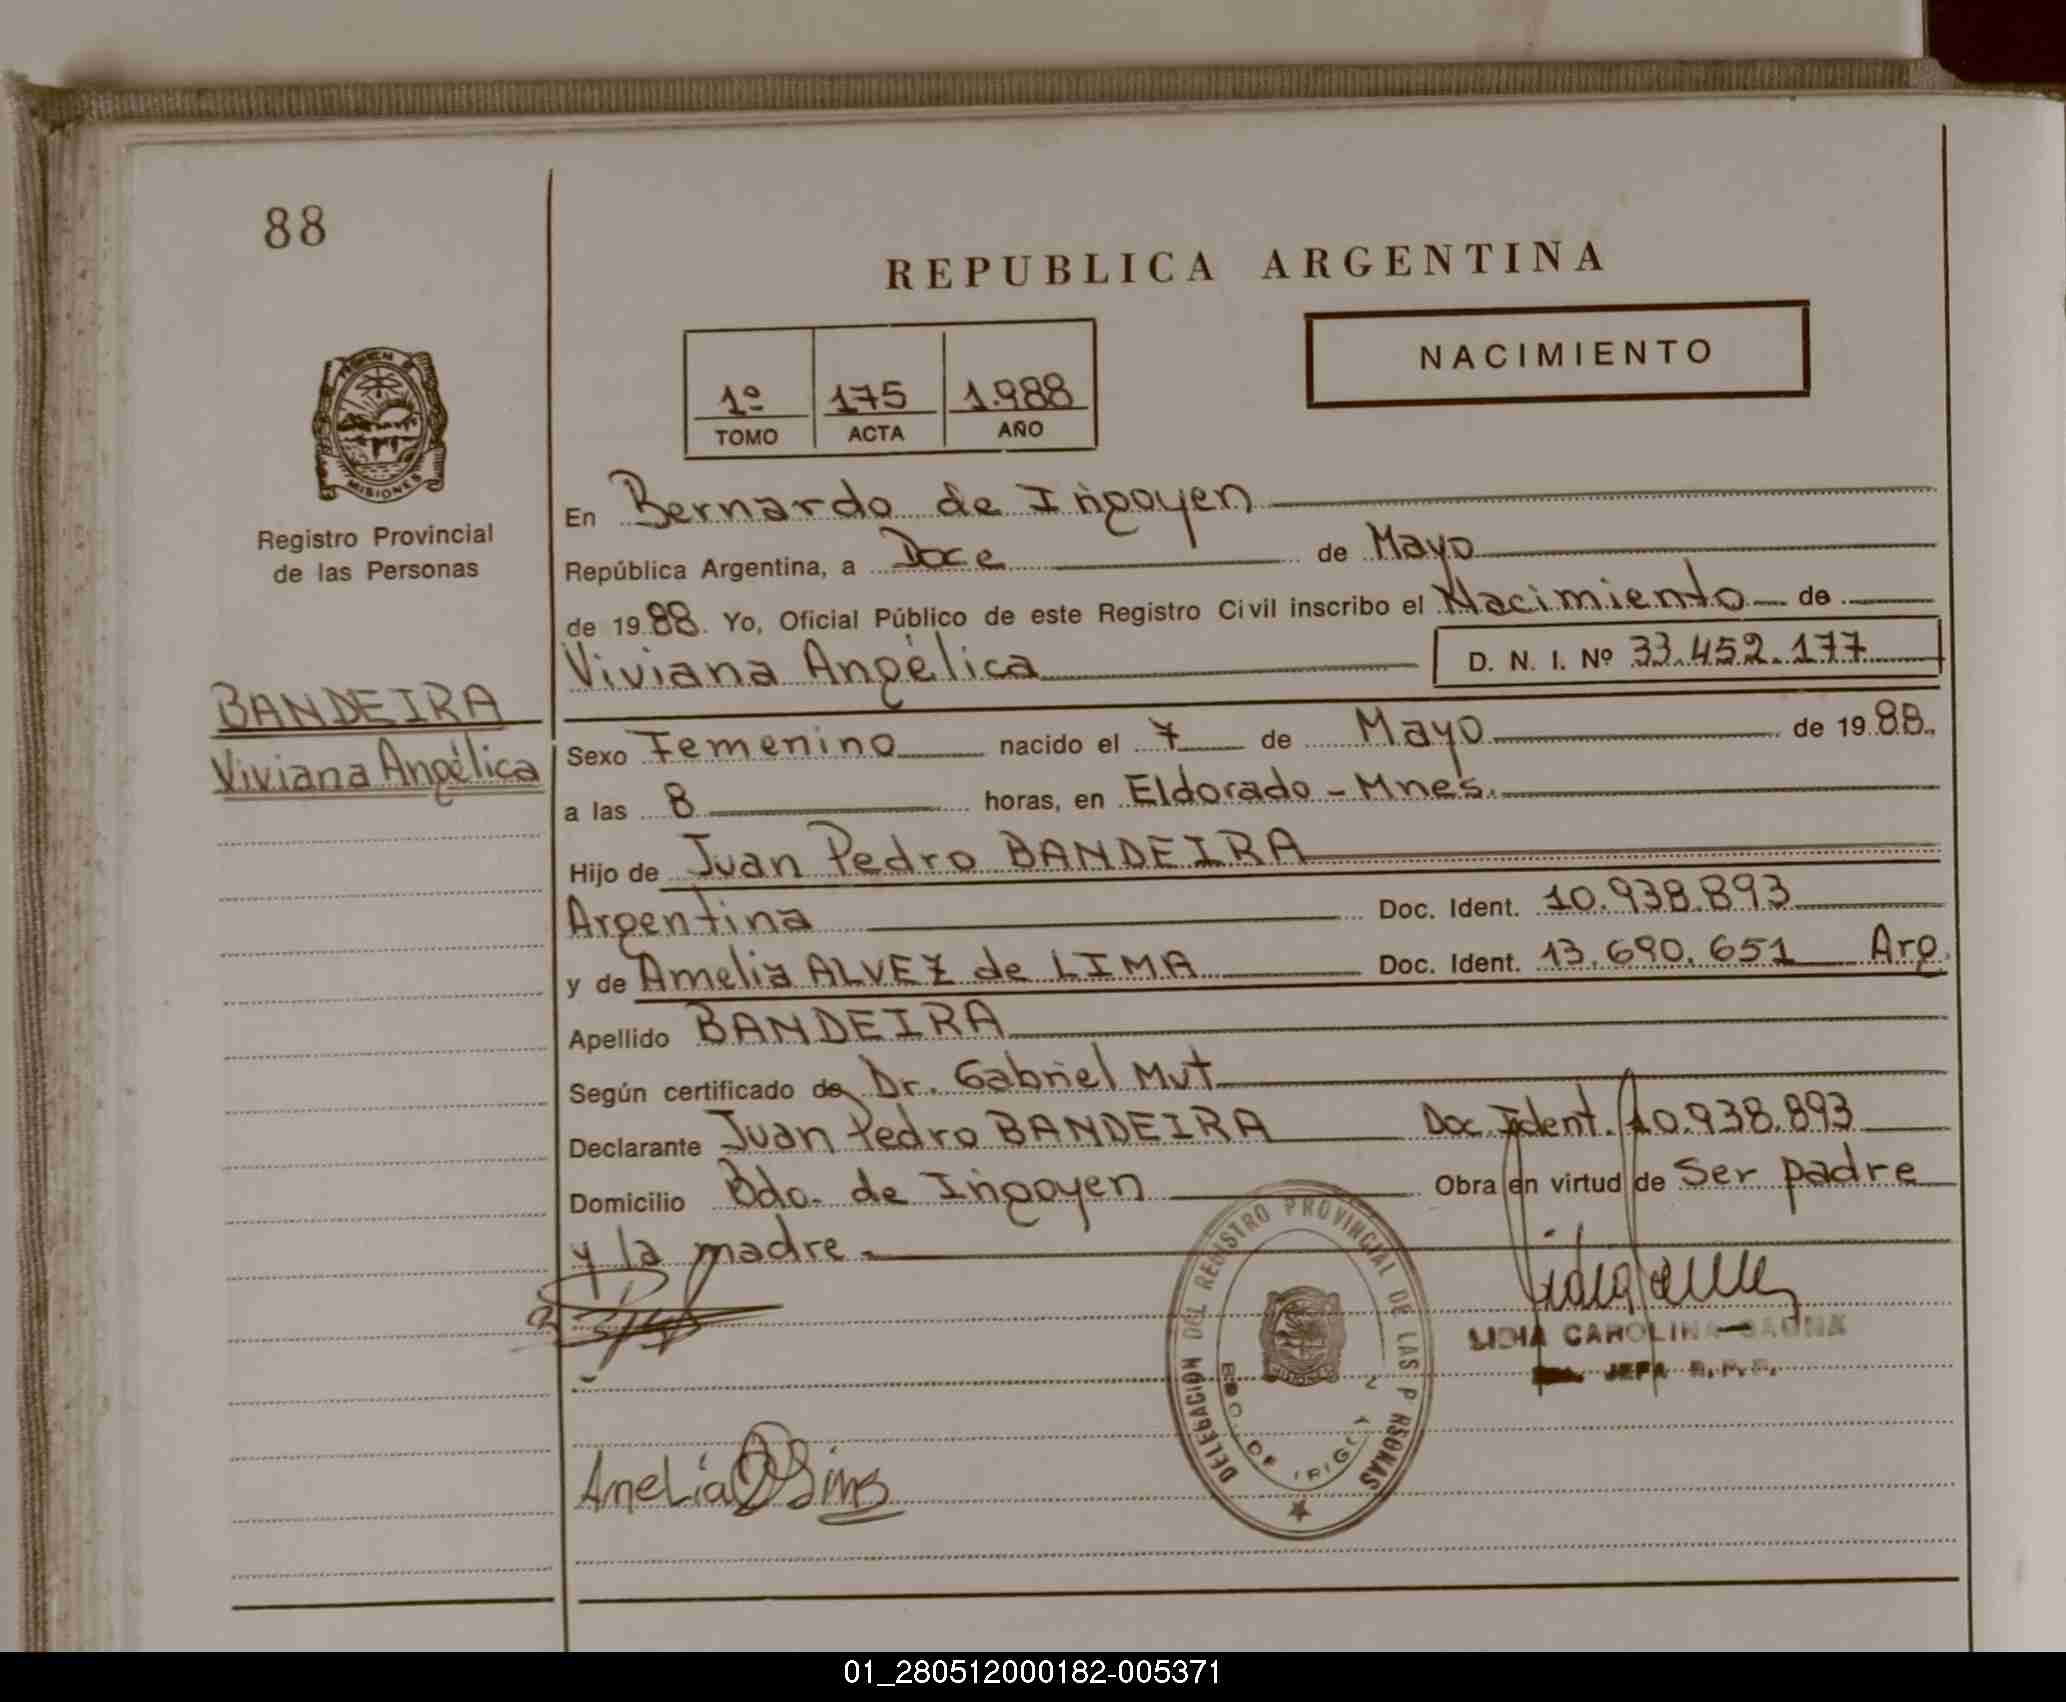 88
REPUBLICA ARGENTINA
NACIMIENTO
1º 175 1.988
TOMO ACTA AÑO
MISIONES
Registro Provincial
de las Personas
BANDEIRA
Viviana Angélica
En Bernardo de Irigoyen
República Argentina, a Doce de Mayo
de 1988. Yo, Oficial Público de este Registro Civil inscribo el Nacimiento de
Viviana Angélica D. N. I. Nº 33.452.177
Sexo Femenino nacido el 7 de Mayo de 1988.
a las 8 horas, en Eldorado - Mnes.
Hijo de Juan Pedro BANDEIRA
Argentina Doc. Ident. 10.938.893
y de Amelia ALVEZ de LIMA Doc. Ident. 13.690.651 Arg.
Apellido BANDEIRA
Según certificado de Dr. Gabriel Mut
Declarante Juan Pedro BANDEIRA Doc. Ident. 10.938.893
Domicilio Bdo. de Irigoyen Obra en virtud de Ser padre
y la madre.
DELEGACION DEL REGISTRO PROVINCIAL DE LAS P RSONAS
BDO. DE IRIGOY
LIDIA CAROLINA
JEFA R.P.P.
Amelia
01_280512000182-005371